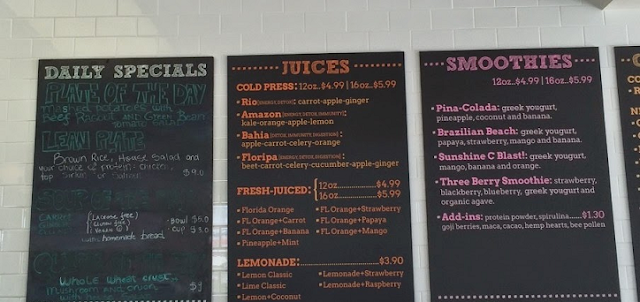 DAILY SPECIALS
PLATE OF THE DAY
Beef
Green Bean
LEAN PLATE
Brown Rice, House Salad and
your choice of protein: chicken,
$9.0
Bowl $6.0
Cup $5.0
with homemade bread
Whole Wheat crust
Mushroom and onion
$9
JUICES
COLD PRESS: 12oz..$4.99 | 16oz..$5.99
Rio (ENERGY, DETOX): carrot-apple-ginger
Amazon (ENERGY, DETOX, IMMUNITY):
kale-orange-apple-lemon
Bahia (DETOX, IMMUNITY, DIGESTION):
apple-carrot-celery-orange
Floripa (ENERGY, DETOX, DIGESTION):
beet-carrot-celery-cucumber-apple-ginger
FRESH-JUICED: 12oz......................$4.99
16oz......................$5.99
• Florida Orange • FL Orange+Strawberry
• FL Orange+Carrot • FL Orange+Papaya
• FL Orange+Banana • FL Orange+Mango
• Pineapple+Mint
LEMONADE:..............................$3.90
• Lemon Classic • Lemonade+Strawberry
• Lime Classic • Lemonade+Raspberry
• Lemon+Coconut
SMOOTHIES
12oz..$4.99 | 16oz..$5.99
• Pina-Colada: greek yougurt,
pineapple, coconut and banana.
• Brazilian Beach: greek yougurt,
papaya, strawberry, mango and banana.
• Sunshine C Blast!: greek yougurt,
mango, banana and orange.
• Three Berry Smoothie: strawberry,
blackberry, blueberry, greek yougurt and
organic agave.
• Add-ins: protein powder, spirulina......$1.30
goji berries, maca, cacao, hemp hearts, bee pollen